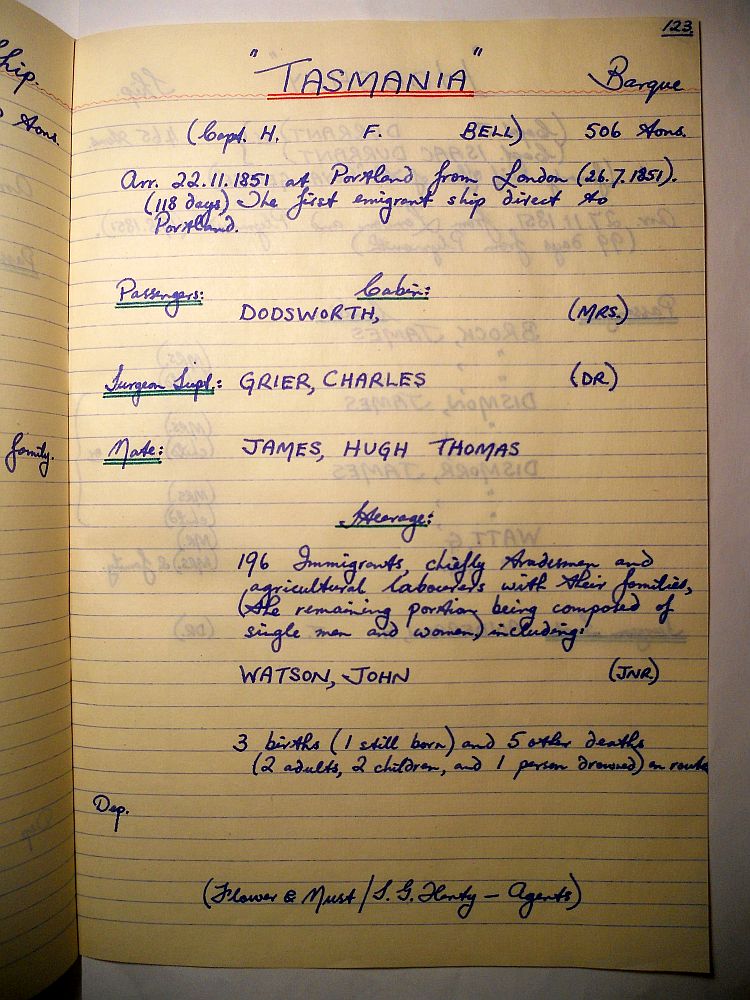 123.
hip.
tons.
family.
"TASMANIA" Barque
(Capt. H. F. BELL) 506 tons.
Arr. 22.11.1851 at Portland from London (26.7.1851).
(118 days) The first emigrant ship direct to
Portland.
Passengers: Cabin:
DODSWORTH, (MRS.)
Surgeon Supt.: GRIER, CHARLES (DR.)
Mate: JAMES, HUGH THOMAS
Steerage:
196 Immigrants, chiefly tradesmen and
agricultural labourers with their families,
(the remaining portion being composed of
single men and women) including:
WATSON, JOHN (JNR.)
3 births (1 still born) and 5 other deaths
(2 adults, 2 children, and 1 person drowned) en route
Dep.
(Flower & Must / S. G. Henty – Agents)